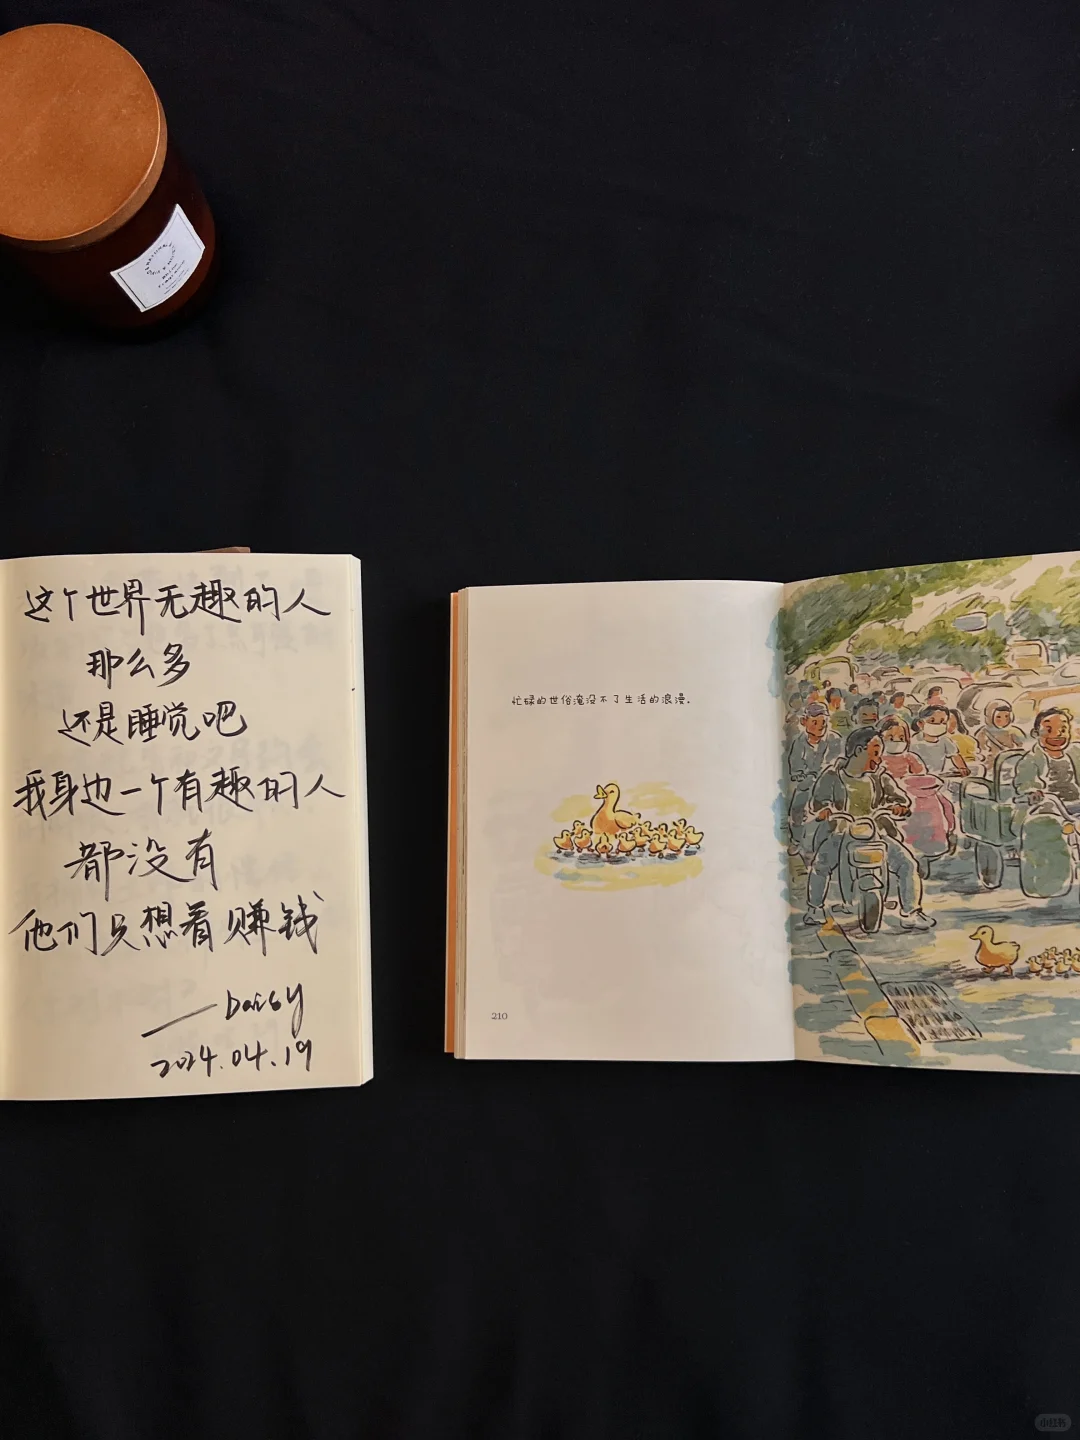 这个世界无趣的人
那么多
还是睡觉吧
我身边一个有趣的人
都没有
他们只想着赚钱
——Daisy
2024.04.19
忙碌的世俗淹没不了生活的浪漫。
210
小红书